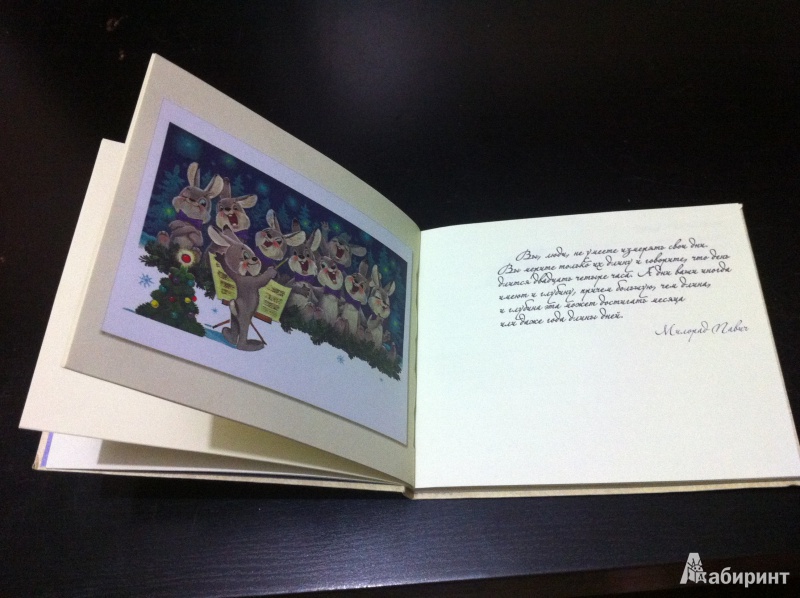 Вы, люди, не умеете измерять свои дни.
Вы мерите только их длину и говорите, что день
длится двадцать четыре часа. А дни ваши иногда
имеют и глубину, причем большую, чем длина,
и глубина эта может достигать месяца
или даже года длины дней.
Милорад Павич
Лабиринт